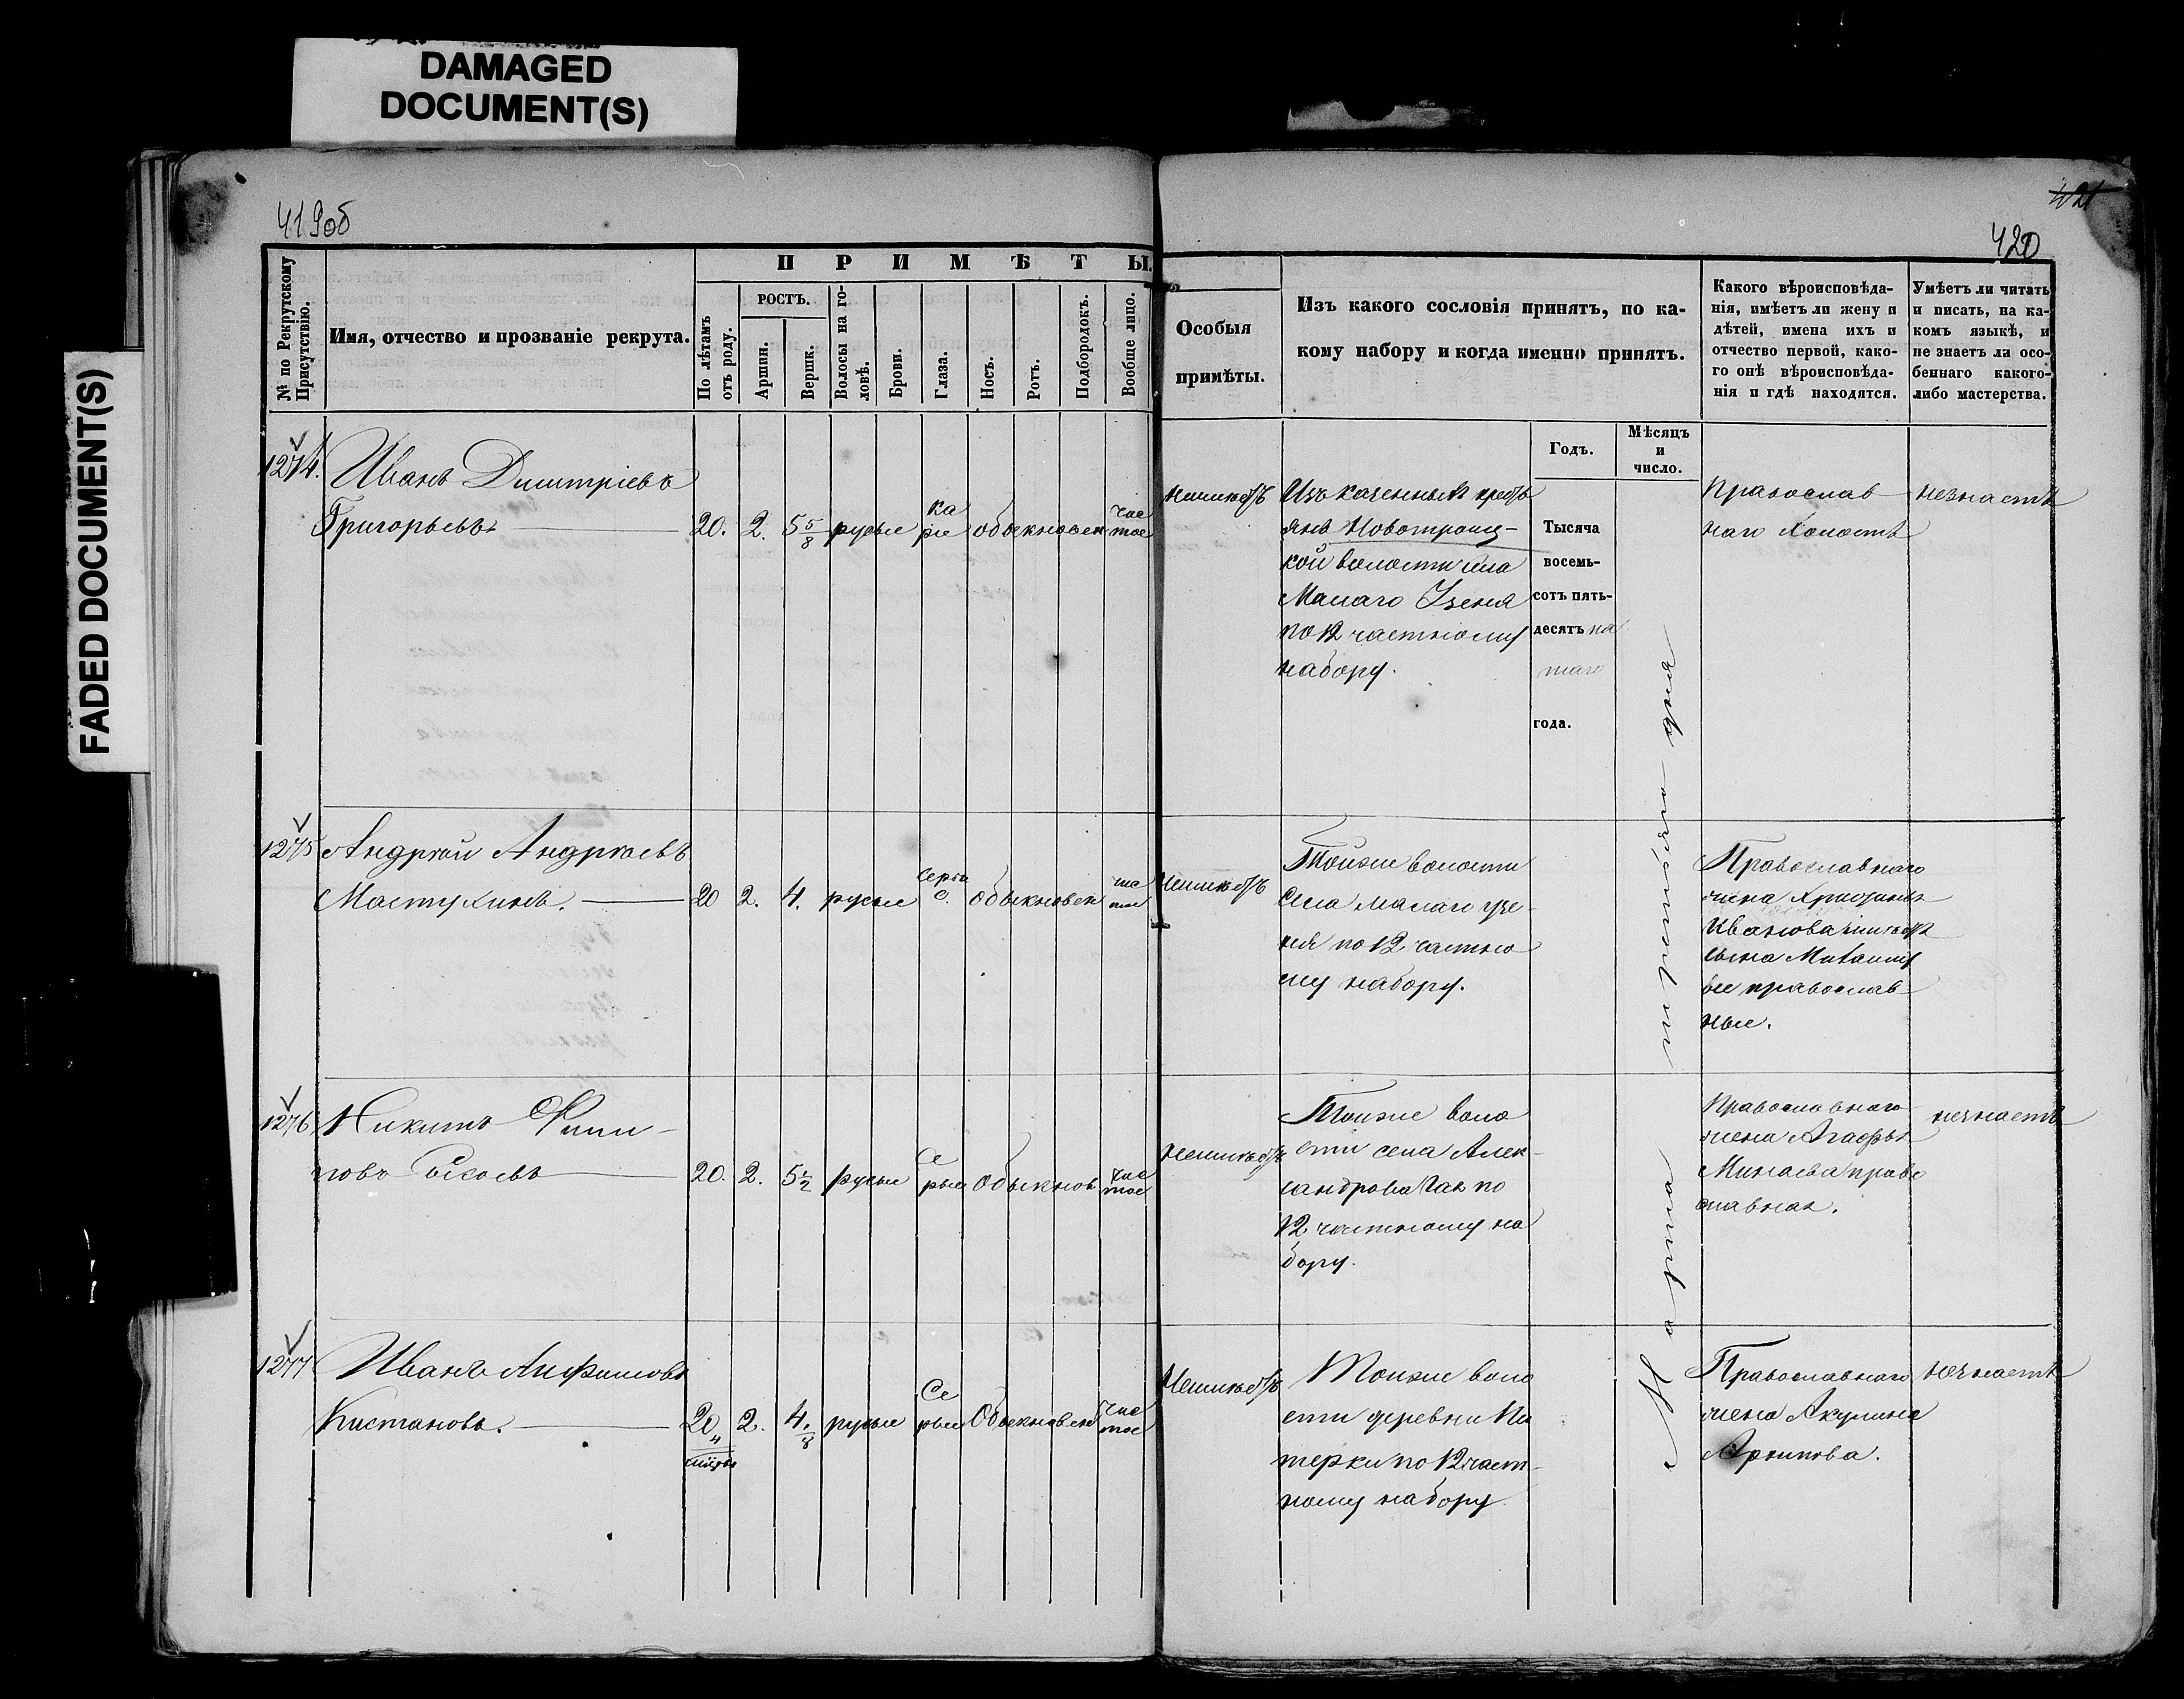 DAMAGED
DOCUMENT(S)
FADED DOCUMENT(S)
419об
421
420
П Р И М Ѣ Т Ы.
№ по Рекрутскому
Присутствію.
Имя, отчество и прозваніе рекрута.
По лѣтамъ
отъ роду.
РОСТЪ.
Аршин.
Вершк.
Волосы на го-
ловѣ.
Брови.
Глаза.
Носъ.
Ротъ.
Подбородокъ.
Вообще лицо.
Особыя
примѣты.
Изъ какого сословія принятъ, по ка-
кому набору и когда именно принятъ.
Какого вѣроисповѣда-
нія, имѣетъ ли жену и
дѣтей, имена ихъ и
отчество первой, како-
го онѣ вѣроисповѣда-
нія и гдѣ находятся.
Умѣетъ ли читать
и писать, на ка-
комъ языкѣ, и
не знаетъ ли осо-
беннаго какого-
либо мастерства.
Годъ.
Мѣсяцъ
и
число.
1274.
Иванъ Димитріевъ
Григорьевъ
20. 2. 5 5/8 русые
ка
ріе
обыкновен
чис
тое
Изъ казенных
янъ Новотроиц-
кой волости села
Малаго Узеня
по 12 частному
набору.
Тысяча
восемь-
сотъ пять-
десятъ пя
таго
года.
Марта третьяго дня
Православ
наго Холостъ
незнаетъ
1275
Андрей Андреевъ
Мастухинъ.
20 2. 4. русые
серы
е.
обыкновен
Тойже волости
села малаго узе-
ня по 12 частно
му набору.
Православнаго
жена
Иванова
сына
все православ-
ные.
1276
Никита Фили-
повъ
20. 2. 5 1/2 русые
Се
рые
обыкнов
чис
тое
Тойже воло
сти села Алек-
сандрова Гая по
12 частному на
бору.
Православнаго
жена Агафья
Минаева право
славная.
незнаетъ
1277
Иванъ Анфимовъ
Кистановъ.
20 4 2. 4. 1/8 русые
Се
рые
Обыкновен
чис
тое
Тойже воло
сти деревни Пи
терки по 12 част-
ному набору
Православнаго
жена Акулина
Архипова.
незнаетъ